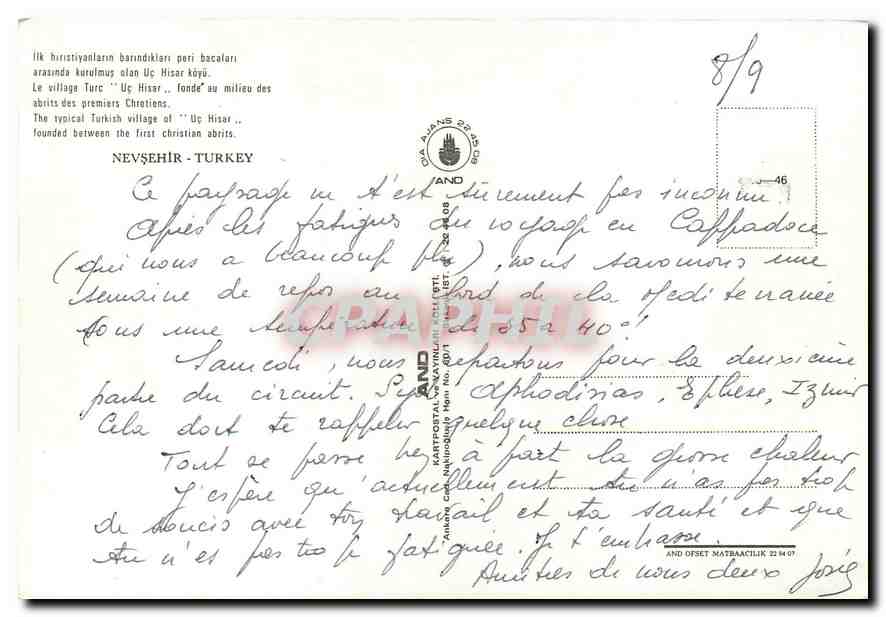 İlk hıristiyanların barındıkları peri bacaları
arasında kurulmuş olan Uç Hisar köyü.
Le village Turc "Uç Hisar„ fondé au milieu des
abrits des premiers Chretiens.
The typical Turkish village of "Uç Hisar„
founded between the first christian abrits.
NEVŞEHİR - TURKEY
8/9
DIA AJANS 22 45 08
AND
46
Ce paysage ne t'est sûrement pas inconnu
Après les fatigues du voyage en Cappadoce
(qui nous a beaucoup plu), nous savourons une
semaine de repos au bord de la Méditerranée
sous une température de 35 à 40°!
Samedi, nous repartons pour la deuxième
partie du circuit. Aphodisias, Ephèse, Izmir
Cela doit te rappeler quelque chose
Tout se passe bien à part la grosse chaleur
J'espère qu'actuellement tu n'as pas trop
de soucis avec ton travail et ta santé et que
tu n'es pas trop fatiguée. Je t'embrasse.
Amitiés de nous deux Josie
AND
KARTPOSTAL ve YAYINLARI
Ankara Cad. No. 60/1
IST. 22 45 08
AND OFSET MATBAACILIK 22 94 07
CPAPHIL